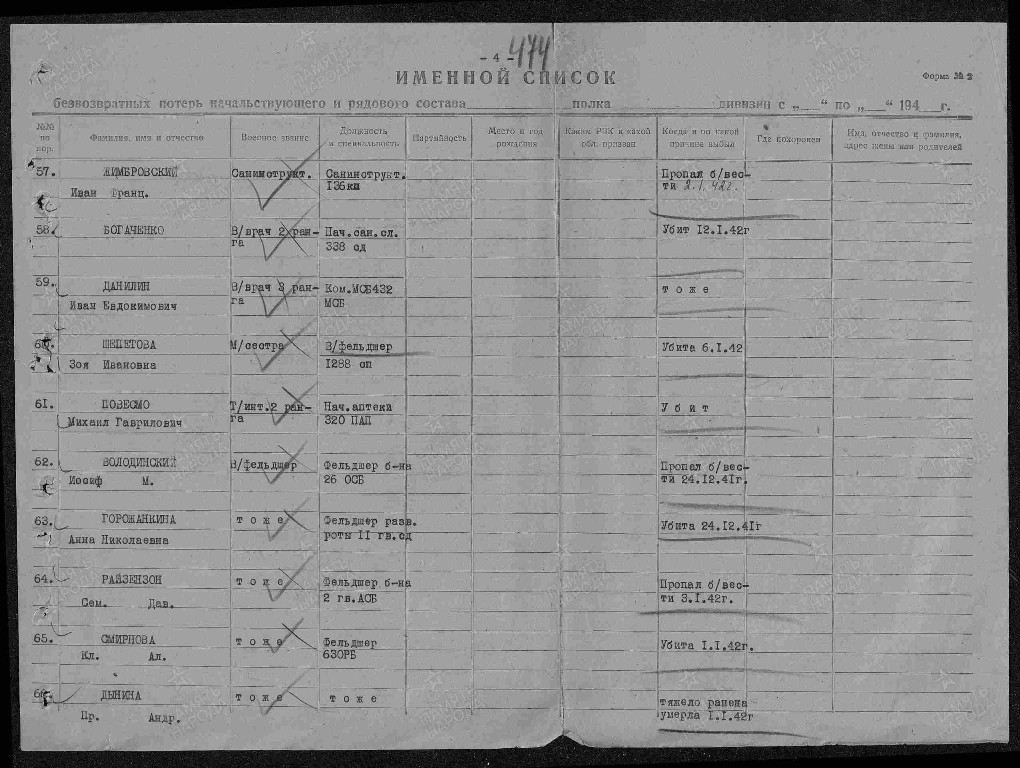 - 4 - 474
ИМЕННОЙ СПИСОК
Форма № 2
безвозвратных потерь начальствующего и рядового состава полка дивизии с „ “ по „ “ 194 г.
№№ по пор.
Фамилия, имя и отчество
Военное звание
Должность и специальность
Партийность
Место и год рождения
Каким РВК и какой обл. призван
Когда и по какой причине выбыл
Где похоронен
Имя, отчество и фамилия, адрес жены или родителей
57. Санинструкт. Санинструкт. Пропал б/вес-
Иван Франц. 136кп ти 2.I.42г.
58. БОГАЧЕНКО В/врач 2 ран- Нач.сан.сл. Убит 12.I.42г
га 338 сд
59. ДАНИЛИН В/врач 3 ран- Ком.МСБ432 т о ж е
Иван Евдокимович га МСБ
ШЕПЕТОВА М/сестра В/фельдшер Убита 6.I.42
Зоя Ивановна 1288 сп
61. ПОВЕСМО Т/инт.2 ран- Нач.аптеки У б и т
Михаил Гаврилович га 320 ПАП
62. ВОЛОДИНСКИЙ В/фельдшер Фельдшер б-на Пропал б/вес-
Иосиф М. 26 ОСБ ти 24.12.41г.
63. ГОРОЖАНКИНА т о ж е Фельдшер разв. Убита 24.12.41г
Анна Николаевна роты II гв.сд
64. РАЙЗЕНЗОН т о ж е Фельдшер б-на Пропал б/вес-
Сем. Дав. 2 гв.АСБ ти 3.I.42г.
65. СМИРНОВА т о ж е Фельдшер Убита I.I.42г.
Кл. Ал. 63ОРБ
66. ДЫНИНА т о ж е т о ж е тяжело ранена
Пр. Андр. умерла I.I.42г